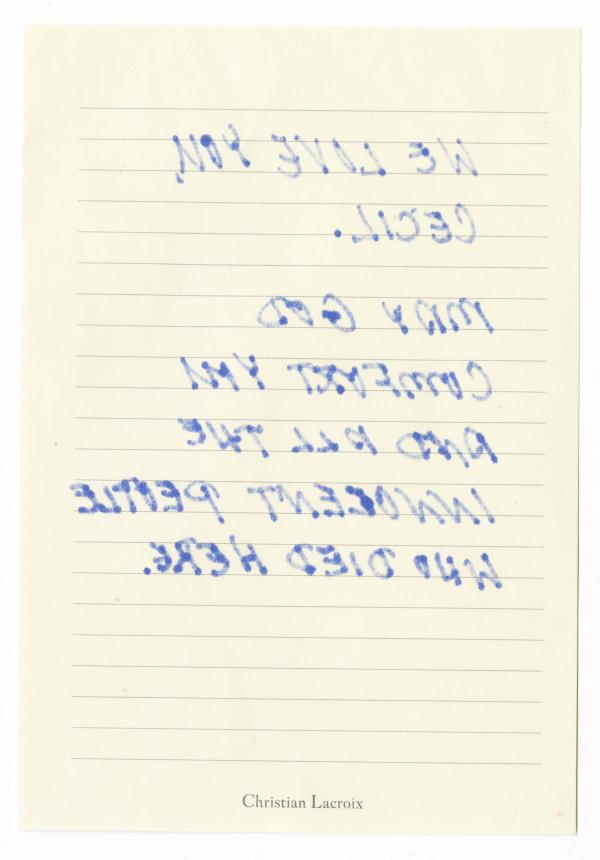 WE LOVE YOU,
CECIL.
MAY GOD
COMFORT YOU
AND ALL THE
INNOCENT PEOPLE
WHO DIED HERE.
Christian Lacroix